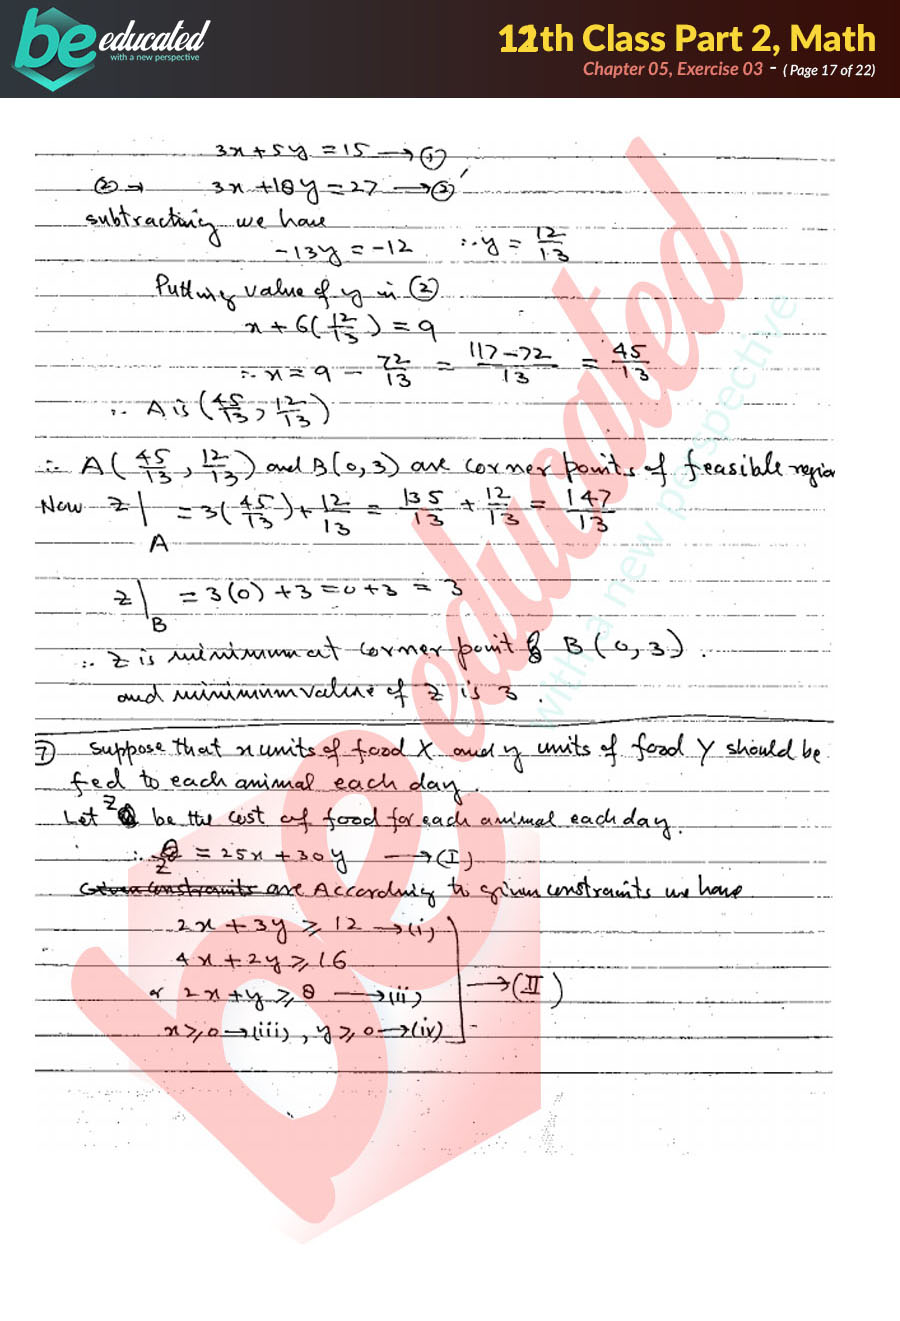 be educated
with a new perspective
12th Class Part 2, Math
Chapter 05, Exercise 03 - ( Page 17 of 22)
3x + 5y = 15 → ①
② → 3x + 18y = 27 → ②'
subtracting we have
-13y = -12 ∴ y = 12/13
Putting value of y in ②
x + 6(12/13) = 9
∴ x = 9 - 72/13 = 117-72/13 = 45/13
∴ A is (45/13, 12/13)
∴ A(45/13, 12/13) and B(0,3) are corner points of feasible region
Now z|A = 3(45/13) + 12/13 = 135/13 + 12/13 = 147/13
z|B = 3(0) + 3 = 0+3 = 3
∴ z is minimum at corner point B(0,3).
and minimum value of z is 3.
⑦ Suppose that x units of food X and y units of food Y should be
fed to each animal each day.
Let z be the cost of food for each animal each day.
∴ z = 25x + 30y → (I)
Given constraints are According to given constraints we have
2x + 3y ≥ 12 → (i)
4x + 2y ≥ 16
or 2x + y ≥ 8 → (ii) → (II)
x ≥ 0 → (iii), y ≥ 0 → (iv)
be educated
with a new perspective